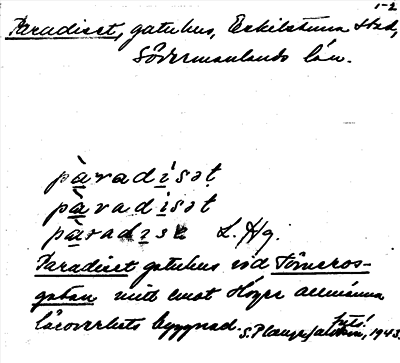 1-2
Paradiset, gatuhus, Eskilstuna stad,
Södermanlands län.
pàradi̱sət
pàvadisət
pàradɪsə L. Hg.
Paradiset gatuhus vid Törneros-
gatan mitt emot Högre allmänna
läroverkets byggnad. S. Plauge 1943.